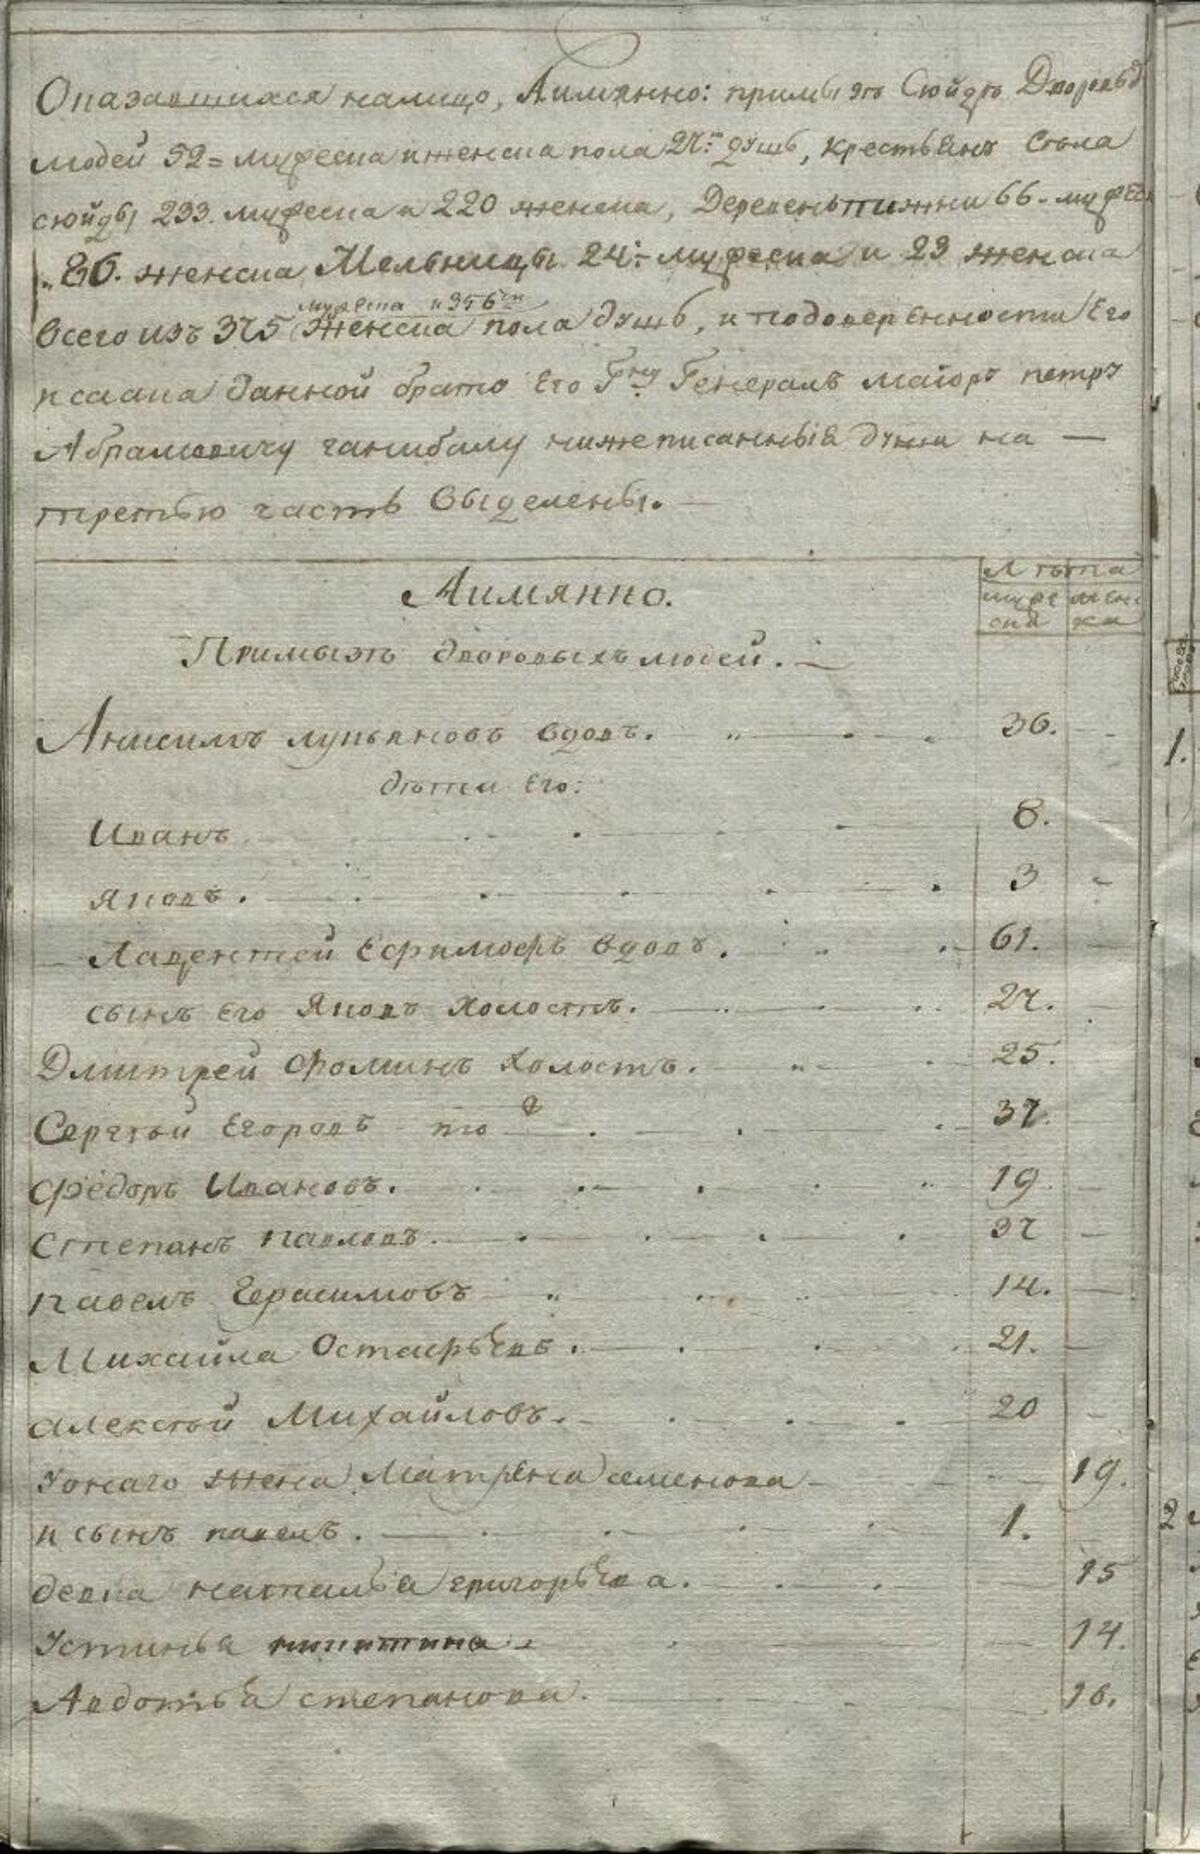 Оказавшихся налицо, Аимянно: примызѣ Сюйдѣ Дворовы
людей 52= мужеска и женска пола 27= душъ, крестьянъ Села
сюйды 233. мужеска и 220 женска, Деревень пижни 66. мужеск
86. женска Мельницы 24= мужеска и 23 женска
мужеска и 356ти
всего изъ 375 женска пола душъ, и подоверѣнности Его
писана данной брато Его Гну Генералъ маiоръ петръ
Абрамовичу ганибалу нижеписанныя души на —
третью часть выделены.
Аимянно.
Лѣта
муже ска
жен ска
Примызѣ дворовыхъ людей.
Анисимъ лупьяновъ вдовъ. 36.
дѣти Его:
Иванъ 8.
яковъ. 3
Лаврентей Ефимофъ вдовъ. 61.
сынъ Его Яковъ холостъ. 27.
Дмитрей Фоминъ холостъ. 25.
Сергѣй Егоровъ то ж 37.
Федоръ Ивановъ. 19.
Степанъ павловъ. 37
павелъ Герасимовъ 14.
Михайла Остафьевъ. 21.
алексѣй Михайловъ. 20
Уонаго жена Матрена семенова 19.
и сынъ павелъ. 1.
девка наталья григорьева. 15
Устинья никитина 14.
Авдотья степанова. 16.